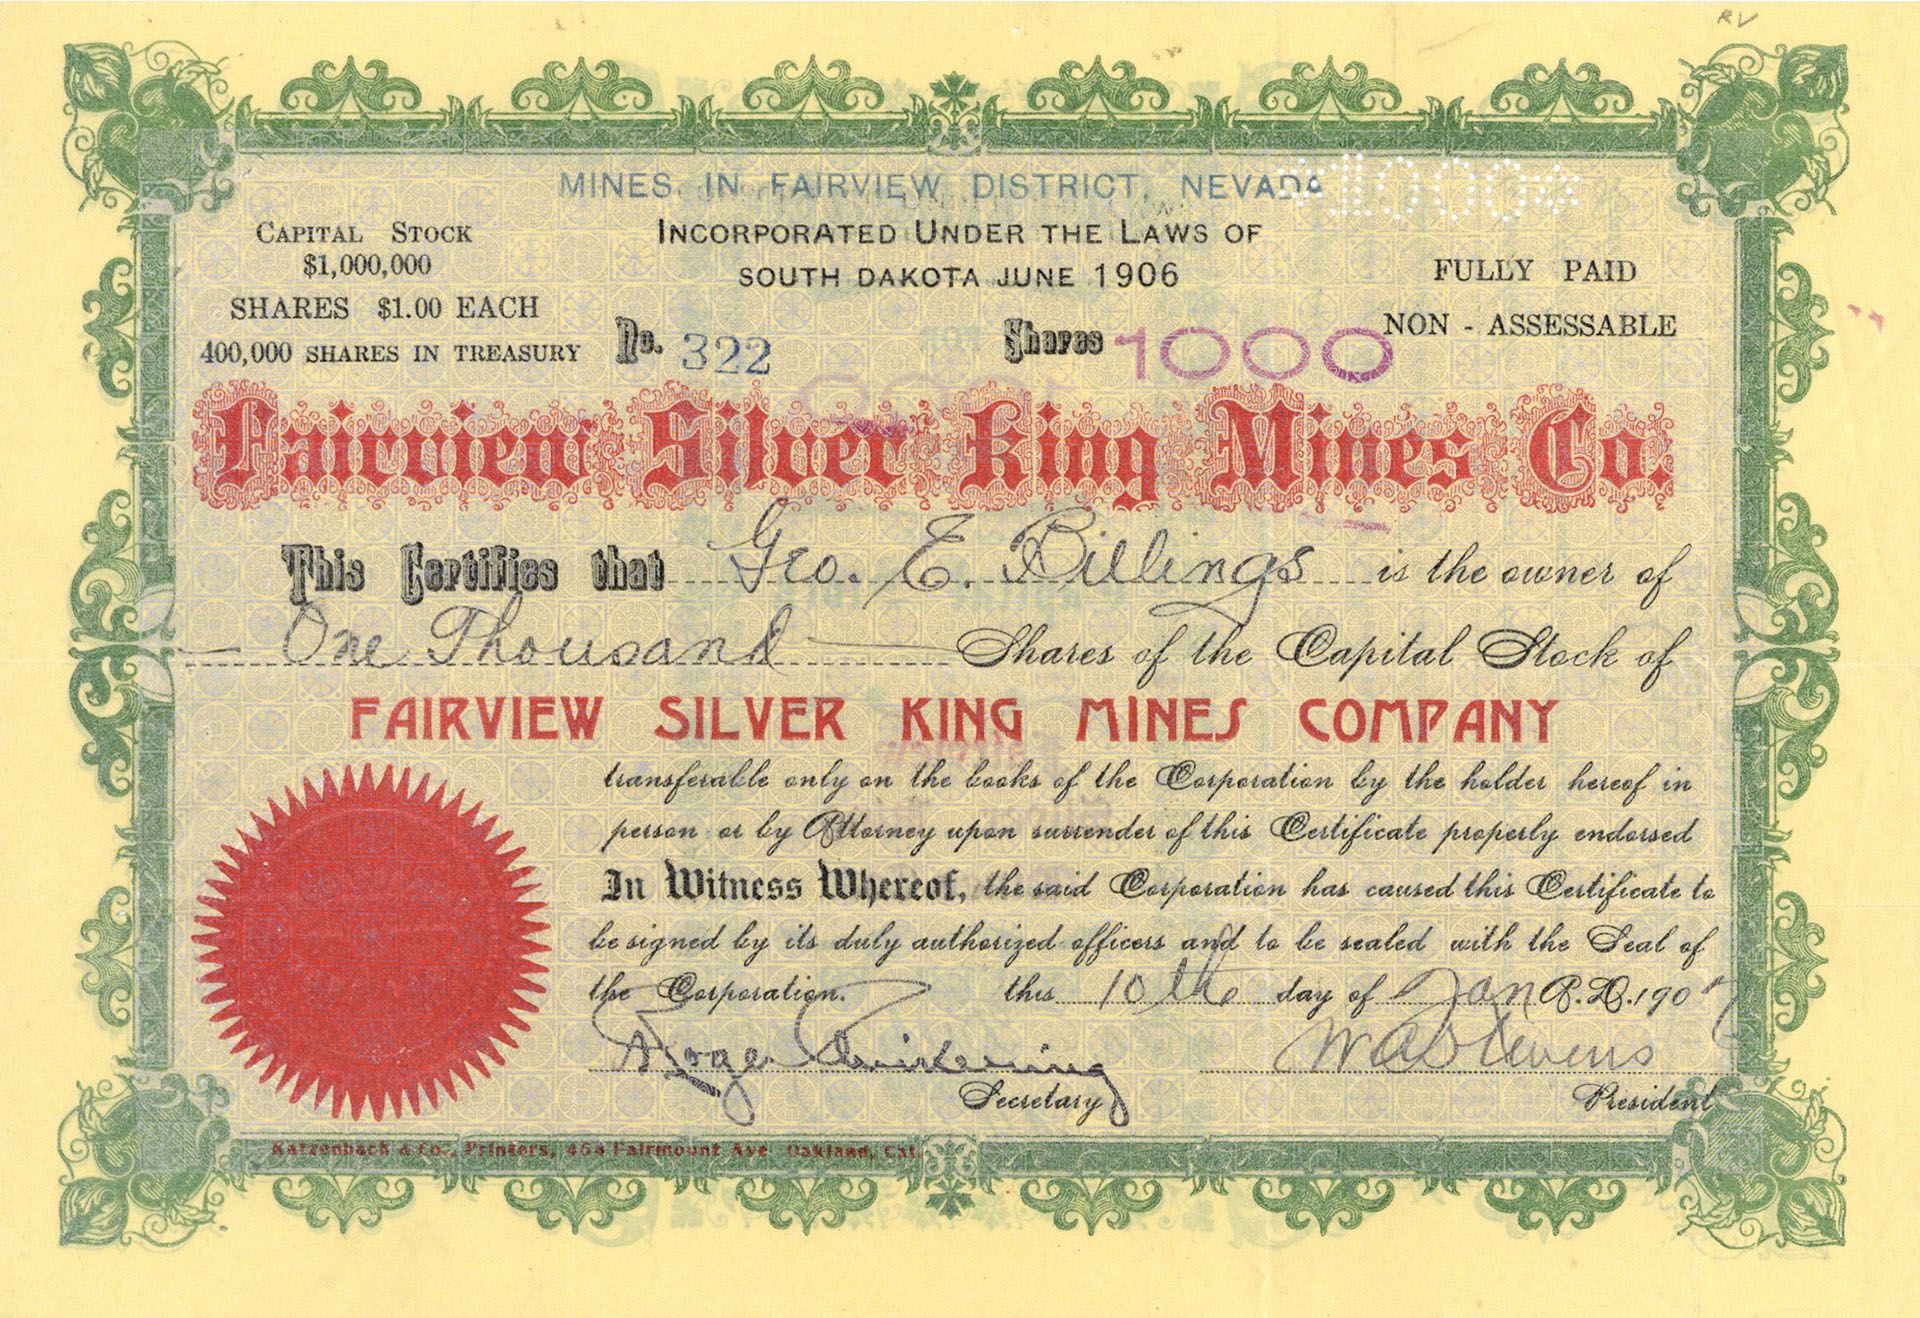 RV
MINES IN FAIRVIEW DISTRICT, NEVADA
*1000*
INCORPORATED UNDER THE LAWS OF
SOUTH DAKOTA JUNE 1906
CAPITAL STOCK
$1,000,000
SHARES $1.00 EACH
400,000 SHARES IN TREASURY
FULLY PAID
NON - ASSESSABLE
No. 322
Shares 1000
Fairview Silver King Mines Co.
This Certifies that Geo. E. Billings is the owner of
One Thousand Shares of the Capital Stock of
FAIRVIEW SILVER KING MINES COMPANY
transferable only on the books of the Corporation by the holder hereof in
person or by Attorney upon surrender of this Certificate properly endorsed
In Witness Whereof, the said Corporation has caused this Certificate to
be signed by its duly authorized officers and to be sealed with the Seal of
the Corporation. this 10th day of Jan A.D. 1907
Secretary
W A Stevens
President
Katzenbach & Co., Printers, 464 Fairmount Ave Oakland, Cal.